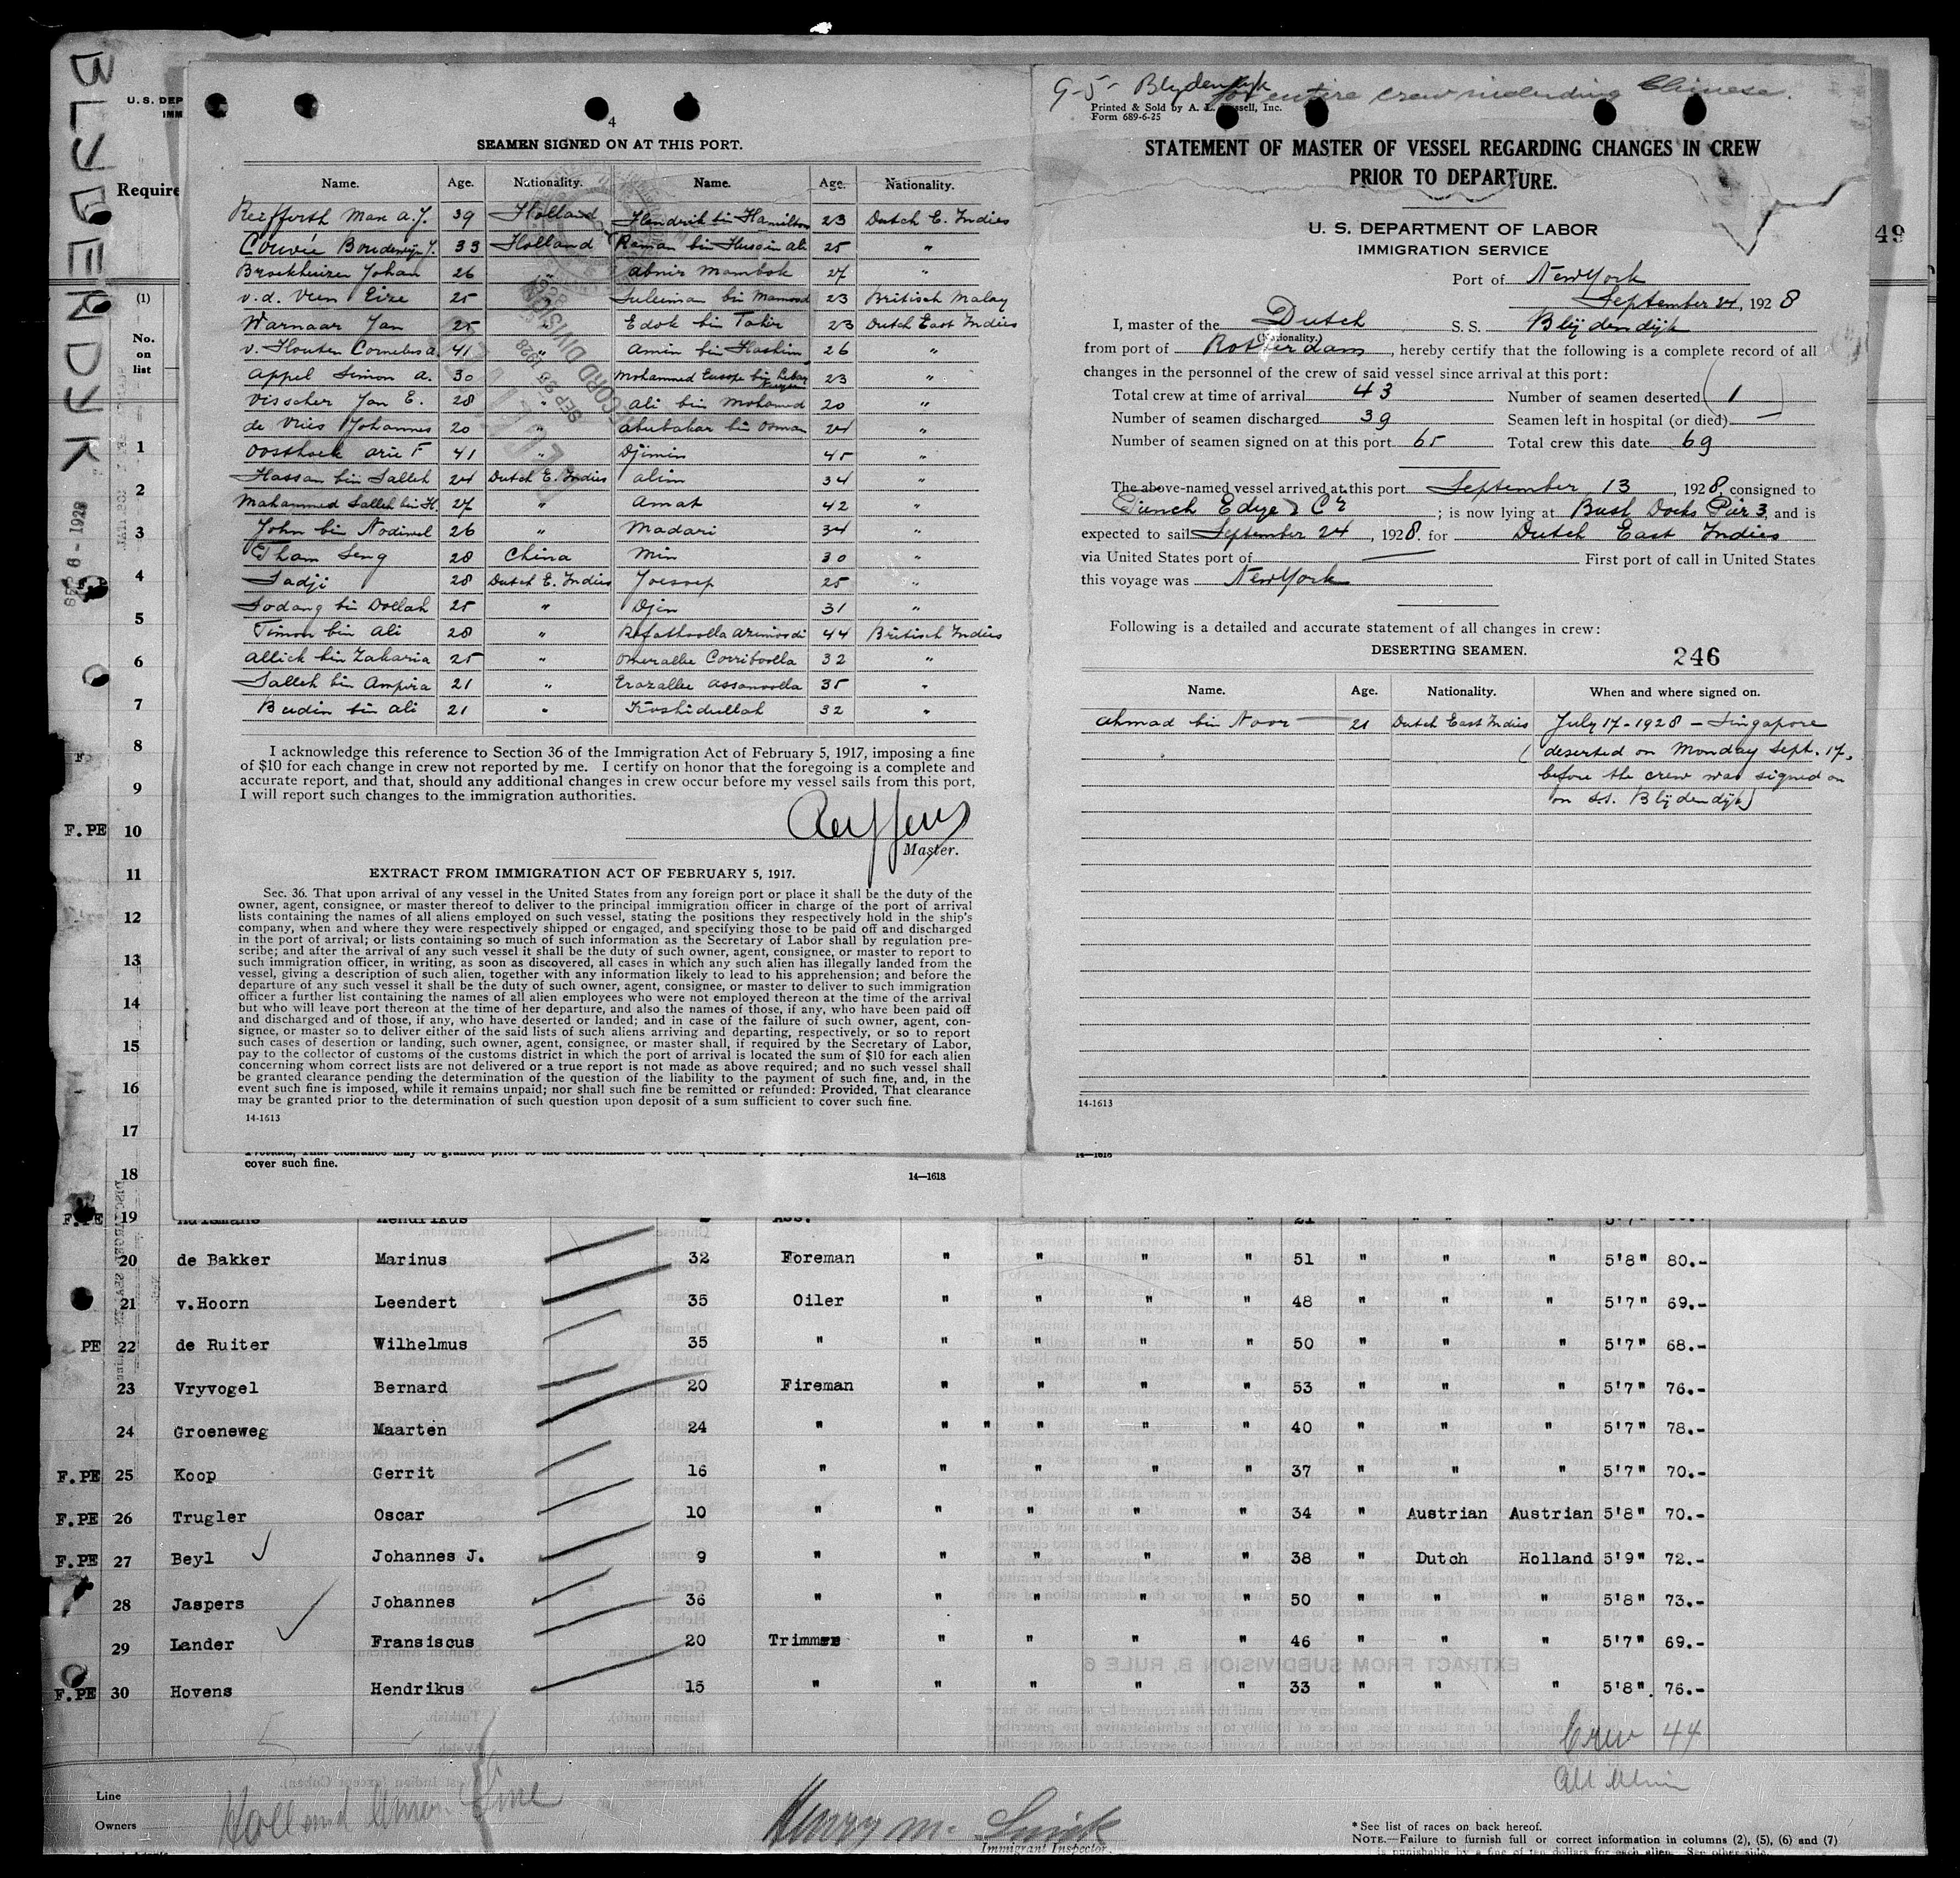 BLYDENDYK
SEP 26 1928
U.S. DEP
IMM
Require
(1)
No.
on
list
49
4
SEAMEN SIGNED ON AT THIS PORT.
Name. Age. Nationality. Name. Age. Nationality.
Reifferth Max A.J. 39 Holland Hendrik bin Hamilton 23 Dutch E. Indies
Couvée Boudewijn J. 33 Holland Raman bin Husain Ali 25 "
Broekhuizen Johan 26 " Abnir Mambok 27 "
v.d. Veen Eize 25 " Suleiman bin Mamood 23 Britisch Malay
Warnaar Jan 25 " Edok bin Tahir 23 Dutch East Indies
v. Houten Cornelis A. 41 " Amin bin Hashim 26 "
Appel Simon A. 30 " Mohammed Eusope bin 23 "
Visscher Jan E. 28 " Ali bin Mohamed 20 "
de Vries Johannes 20 " Abubakar bin Osman 24 "
Oosthoek Arie F 41 " Djimin 45 "
Hassan bin Salleh 24 Dutch E. Indies Alim 34 "
Mahammed Salleh bin H. 27 " Amat 42 "
John bin Nodiwel 26 " Madari 34 "
Tham Seng 28 China Min 30 "
Sadji 28 Dutch E. Indies Joesoep 25 "
Sodang bin Dollah 25 " Djin 31 "
Timon bin Ali 28 " Rafathoolla Arimoodi 44 Britisch Indies
Allich bin Zakaria 25 " Omerallee Corriboolla 32 "
Salleh bin Ampira 21 " Erazallee Assanoolla 35 "
Budin bin Ali 21 " Koshidullah 32 "
I acknowledge this reference to Section 36 of the Immigration Act of February 5, 1917, imposing a fine
of $10 for each change in crew not reported by me. I certify on honor that the foregoing is a complete and
accurate report, and that, should any additional changes in crew occur before my vessel sails from this port,
I will report such changes to the immigration authorities.
Master.
EXTRACT FROM IMMIGRATION ACT OF FEBRUARY 5, 1917.
Sec. 36. That upon arrival of any vessel in the United States from any foreign port or place it shall be the duty of the
owner, agent, consignee, or master thereof to deliver to the principal immigration officer in charge of the port of arrival
lists containing the names of all aliens employed on such vessel, stating the positions they respectively hold in the ship's
company, when and where they were respectively shipped or engaged, and specifying those to be paid off and discharged
in the port of arrival; or lists containing so much of such information as the Secretary of Labor shall by regulation pre-
scribe; and after the arrival of any such vessel it shall be the duty of such owner, agent, consignee, or master to report to
such immigration officer, in writing, as soon as discovered, all cases in which any such alien has illegally landed from the
vessel, giving a description of such alien, together with any information likely to lead to his apprehension; and before the
departure of any such vessel it shall be the duty of such owner, agent, consignee, or master to deliver to such immigration
officer a further list containing the names of all alien employees who were not employed thereon at the time of the arrival
but who will leave port thereon at the time of her departure, and also the names of those, if any, who have been paid off
and discharged and of those, if any, who have deserted or landed; and in case of the failure of such owner, agent, con-
signee, or master so to deliver either of the said lists of such aliens arriving and departing, respectively, or so to report
such cases of desertion or landing, such owner, agent, consignee, or master shall, if required by the Secretary of Labor,
pay to the collector of customs of the customs district in which the port of arrival is located the sum of $10 for each alien
concerning whom correct lists are not delivered or a true report is not made as above required; and no such vessel shall
be granted clearance pending the determination of the question of the liability to the payment of such fine, and, in the
event such fine is imposed, while it remains unpaid; nor shall such fine be remitted or refunded: Provided, That clearance
may be granted prior to the determination of such question upon deposit of a sum sufficient to cover such fine.
14-1613
RECEIVED
SEP 25 1928
RECORD DIVISION
9-5- Blydendyk
for entire crew including Chinese.
Printed & Sold by A. L. Russell, Inc.
Form 689-6-25
STATEMENT OF MASTER OF VESSEL REGARDING CHANGES IN CREW
PRIOR TO DEPARTURE.
U. S. DEPARTMENT OF LABOR
IMMIGRATION SERVICE
Port of New York
September 24, 1928
I, master of the Dutch S. S. Blijdendijk
(Nationality.)
from port of Rotterdam, hereby certify that the following is a complete record of all
changes in the personnel of the crew of said vessel since arrival at this port:
Total crew at time of arrival 43 Number of seamen deserted 1
Number of seamen discharged 39 Seamen left in hospital (or died) —
Number of seamen signed on at this port 65 Total crew this date 69
The above-named vessel arrived at this port September 13, 1928, consigned to
Funch Edye & Co; is now lying at Bush Docks Pier 3, and is
expected to sail September 24, 1928. for Dutch East Indies
via United States port of — First port of call in United States
this voyage was New York
Following is a detailed and accurate statement of all changes in crew:
DESERTING SEAMEN.
246
Name. Age. Nationality. When and where signed on.
Ahmad bin Noor 21 Dutch East Indies July 17-1928 - Singapore
(deserted on Monday Sept. 17,
before the crew was signed on
on s.s. Blijdendijk)
14-1613
cover such fine.
14—1618
1
2
3
4
5
6
7
8
9
F.PE 10
11
12
13
14
15
16
17
18
F.PE 19 Huismans Hendrikus Ass. 21
20 de Bakker Marinus 32 Foreman " " " " 51 " " " 5'8" 80.-
21 v.Hoorn Leendert 35 Oiler " " " " 48 " " " 5'7" 69.-
PE 22 de Ruiter Wilhelmus 35 " " " " " 50 " " " 5'7" 68.-
23 Vryvogel Bernard 20 Fireman " " " " 53 " " " 5'7" 76.-
24 Groeneweg Maarten 24 " " " " " " 40 " " " 5'7" 78.-
F.PE 25 Koop Gerrit 16 " " " " " 37 " " " 5'7" 70.-
F.PE 26 Trugler Oscar 10 " " " " " 34 " Austrian Austrian 5'8" 70.-
F.PE 27 Beyl Johannes J. 9 " " " " " 38 " Dutch Holland 5'9" 72.-
28 Jaspers Johannes 36 " " " " " 50 " " " 5'8" 73.-
29 Lander Fransiscus 20 Trimmer " " " " 46 " " " 5'7" 69.-
F.PE 30 Hovens Hendrikus 15 " " " " " 33 " " " 5'8" 76.-
EXTRACT FROM SUBDIVISION B, RULE 6
Crew 44
Line
Owners
Holland Amer. Line
Henry M.
Immigrant Inspector.
*See list of races on back hereof.
NOTE.—Failure to furnish full or correct information in columns (2), (5), (6) and (7)
is punishable by a fine of ten dollars for each alien. See other side.